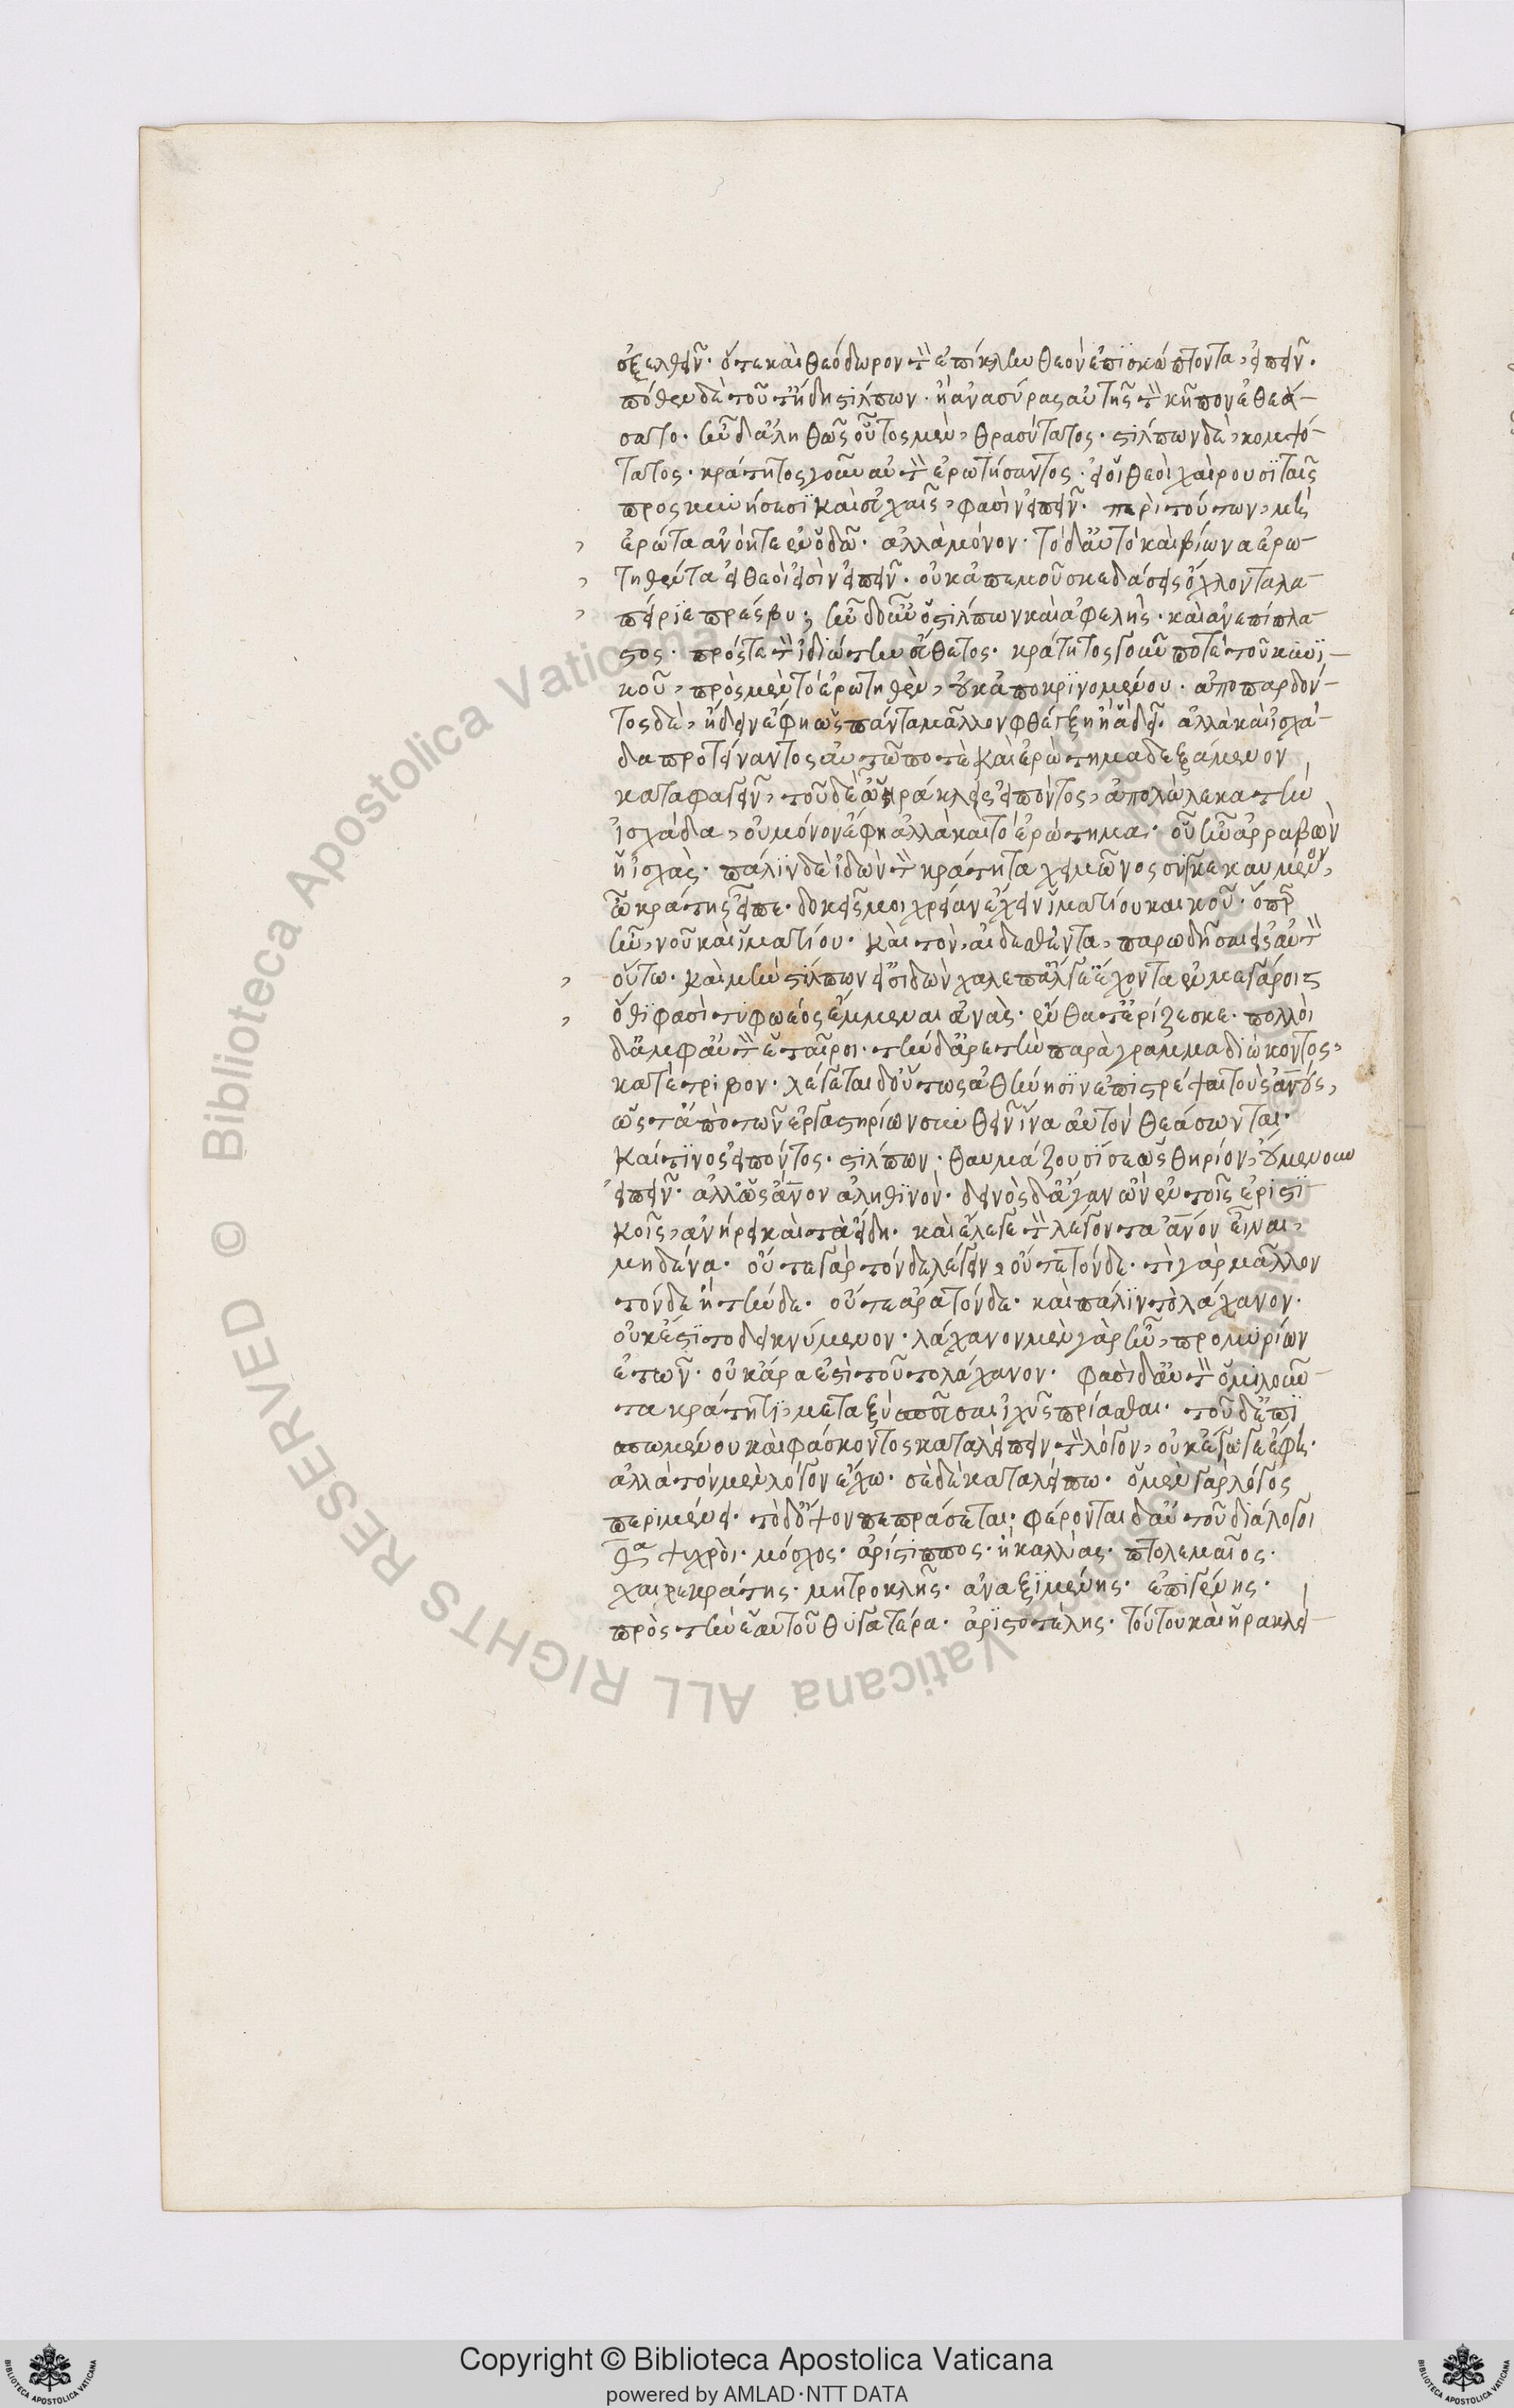 ἐξελθεῖν. ὅτε καὶ θεόδωρον τὸν ἐπίκλην θεὸν ἐπισκώπτοντα, εἰπεῖν.
πόθεν δὲ τοῦτ' ἤδη στίλπων. ἢ ἀνασύρας αὐτῆς τὸν κῆπον ἐθεά-
σατο. ἦν δ' ἀληθῶς οὗτος μὲν, θρασύτατος. στίλπων δὲ, κομψό-
τατος. κράτητος γοῦν αὐτὸν ἐρωτήσαντος. εἰ οἱ θεοὶ χαίρουσι ταῖς
προσκυνήσεσι καὶ εὐχαῖς, φασὶν εἰπεῖν. περὶ τούτων, μὴ
ἐρώτα ἀνόητε ἐν ὁδῶ. ἀλλὰ μόνον. τὸ δ' αὐτὸ καὶ βίωνα ἐρω-
τηθέντα εἰ θεοὶ εἰσὶν εἰπεῖν. οὐκ ἀπ' ἐμοῦ σκεδάσεις ὄχλον ταλα-
πείριε πρέσβυ; ἦν δ' οὖν ὁ στίλπων καὶ ἀφελὴς. καὶ ἀνεπίπλα-
στος. πρός τε τὸν ἰδιώτην εὔθετος. κράτητος γοῦν ποτὲ τοῦ κυνι-
κοῦ, πρὸς μὲν τὸ ἐρωτηθὲν, οὐκ ἀποκρινομένου. ἀποπαρδόν-
τος δὲ, ἤδειν ἔφη ὡς πάντα μᾶλλον φθέγξη ἢ ἃ δεῖ. ἀλλὰ καὶ ἰσχά-
δα προτείναντος αὐτῶ ποτὲ καὶ ἐρώτημα δεξάμενον
καταφαγεῖν, τοῦ δὲ ὦ ἡράκλεις εἰπόντος, ἀπολώλεκα τὴν
ἰσχάδα, οὐ μόνον ἔφη ἀλλὰ καὶ τὸ ἐρώτημα. οὗ ἦν ἀρραβὼν
ἡ ἰσχὰς. πάλιν δὲ ἰδὼν τὸν κράτητα χειμῶνος συγκεκαυμένον,
ὦ κράτης εἶπε. δοκεῖς μοι χρείαν ἔχειν ἱματίου καινοῦ. ὅπερ
ἦν, νοῦ καὶ ἱματίου. καὶ τὸν, αἰδεσθέντα, παρωδῆσαι εἰς αὐτὸν
οὕτω. καὶ μὴν στίλπων' εἰσεῖδον χαλέπ' ἄλγε' ἔχοντα ἐν μεγάροις
ὅθι φασὶ τυφωέος ἔμμεναι εὐνὰς. ἔνθα τ' ἐρίζεσκε. πολλοὶ
δ' ἀμφ' αὐτὸν ἑταῖροι. τὴν δ' ἀρετὴν παρὰ γράμμα διώκοντος,
κατέτριβον. λέγεται δ' οὕτως ἀθήνησιν ἐπιστρέψαι τοὺς ἀν̅ους,
ὥστ' ἀπὸ τῶν ἐργαστηρίων συνθεῖν ἵνα αὐτὸν θεάσωνται.
καί τινος εἰπόντος. στίλπων. θαυμάζουσί σε ὡς θηρίον, οὐ μενοῦν
εἰπεῖν. ἀλλ' ὡς ἄν̅ον ἀληθινὸν. δεινὸς δ' ἄγαν ὢν ἐν τοῖς ἐριστι
κοῖς, ἀνήρει καὶ τὰ εἴδη. καὶ ἔλεγε τὸν λέγοντα ἄν̅ον εἶναι,
μηδένα. οὔτε γὰρ τόνδε λέγειν, οὔτε τόνδε. τί γὰρ μᾶλλον
τόνδε ἢ τήνδε. οὔτε ἄρα τόνδε. καὶ πάλιν τὸ λάχανον.
οὐκ ἔστι τὸ δεικνύμενον. λάχανον μὲν γὰρ ἦν, προ μυρίων
ἐτῶν. οὐκ ἄρα ἐστὶ τοῦτο λάχανον. φασὶ δ' αὐτὸν ὁμιλοῦν-
τα κράτητι, μεταξὺ σπεῦσαι ἰχθῦς πρίασθαι. τοῦ δ' ἐπι
σπωμένου καὶ φάσκοντος καταλείπειν τὸν λόγον, οὐκ ἔγωγε ἔφη.
ἀλλὰ τὸν μὲν λόγον ἔχω. σὲ δὲ καταλείπω. ὁ μὲν γὰρ λόγος
περιμένει. τὸ δ' ὄψον πεπράσεται. φέρονται δ' αὐτοῦ διάλογοι
θ̅ ψυχροὶ. μόσχος. ἀρίστιππος. ἢ καλλίας. πτολεμαῖος.
χαιρεκράτης. μητροκλῆς. ἀναξιμένης. ἐπιγένης.
πρὸς τὴν ἑαυτοῦ θυγατέρα. ἀριστοτέλης. τούτου καὶ ἡρακλεί-
Copyright © Biblioteca Apostolica Vaticana
powered by AMLAD·NTT DATA